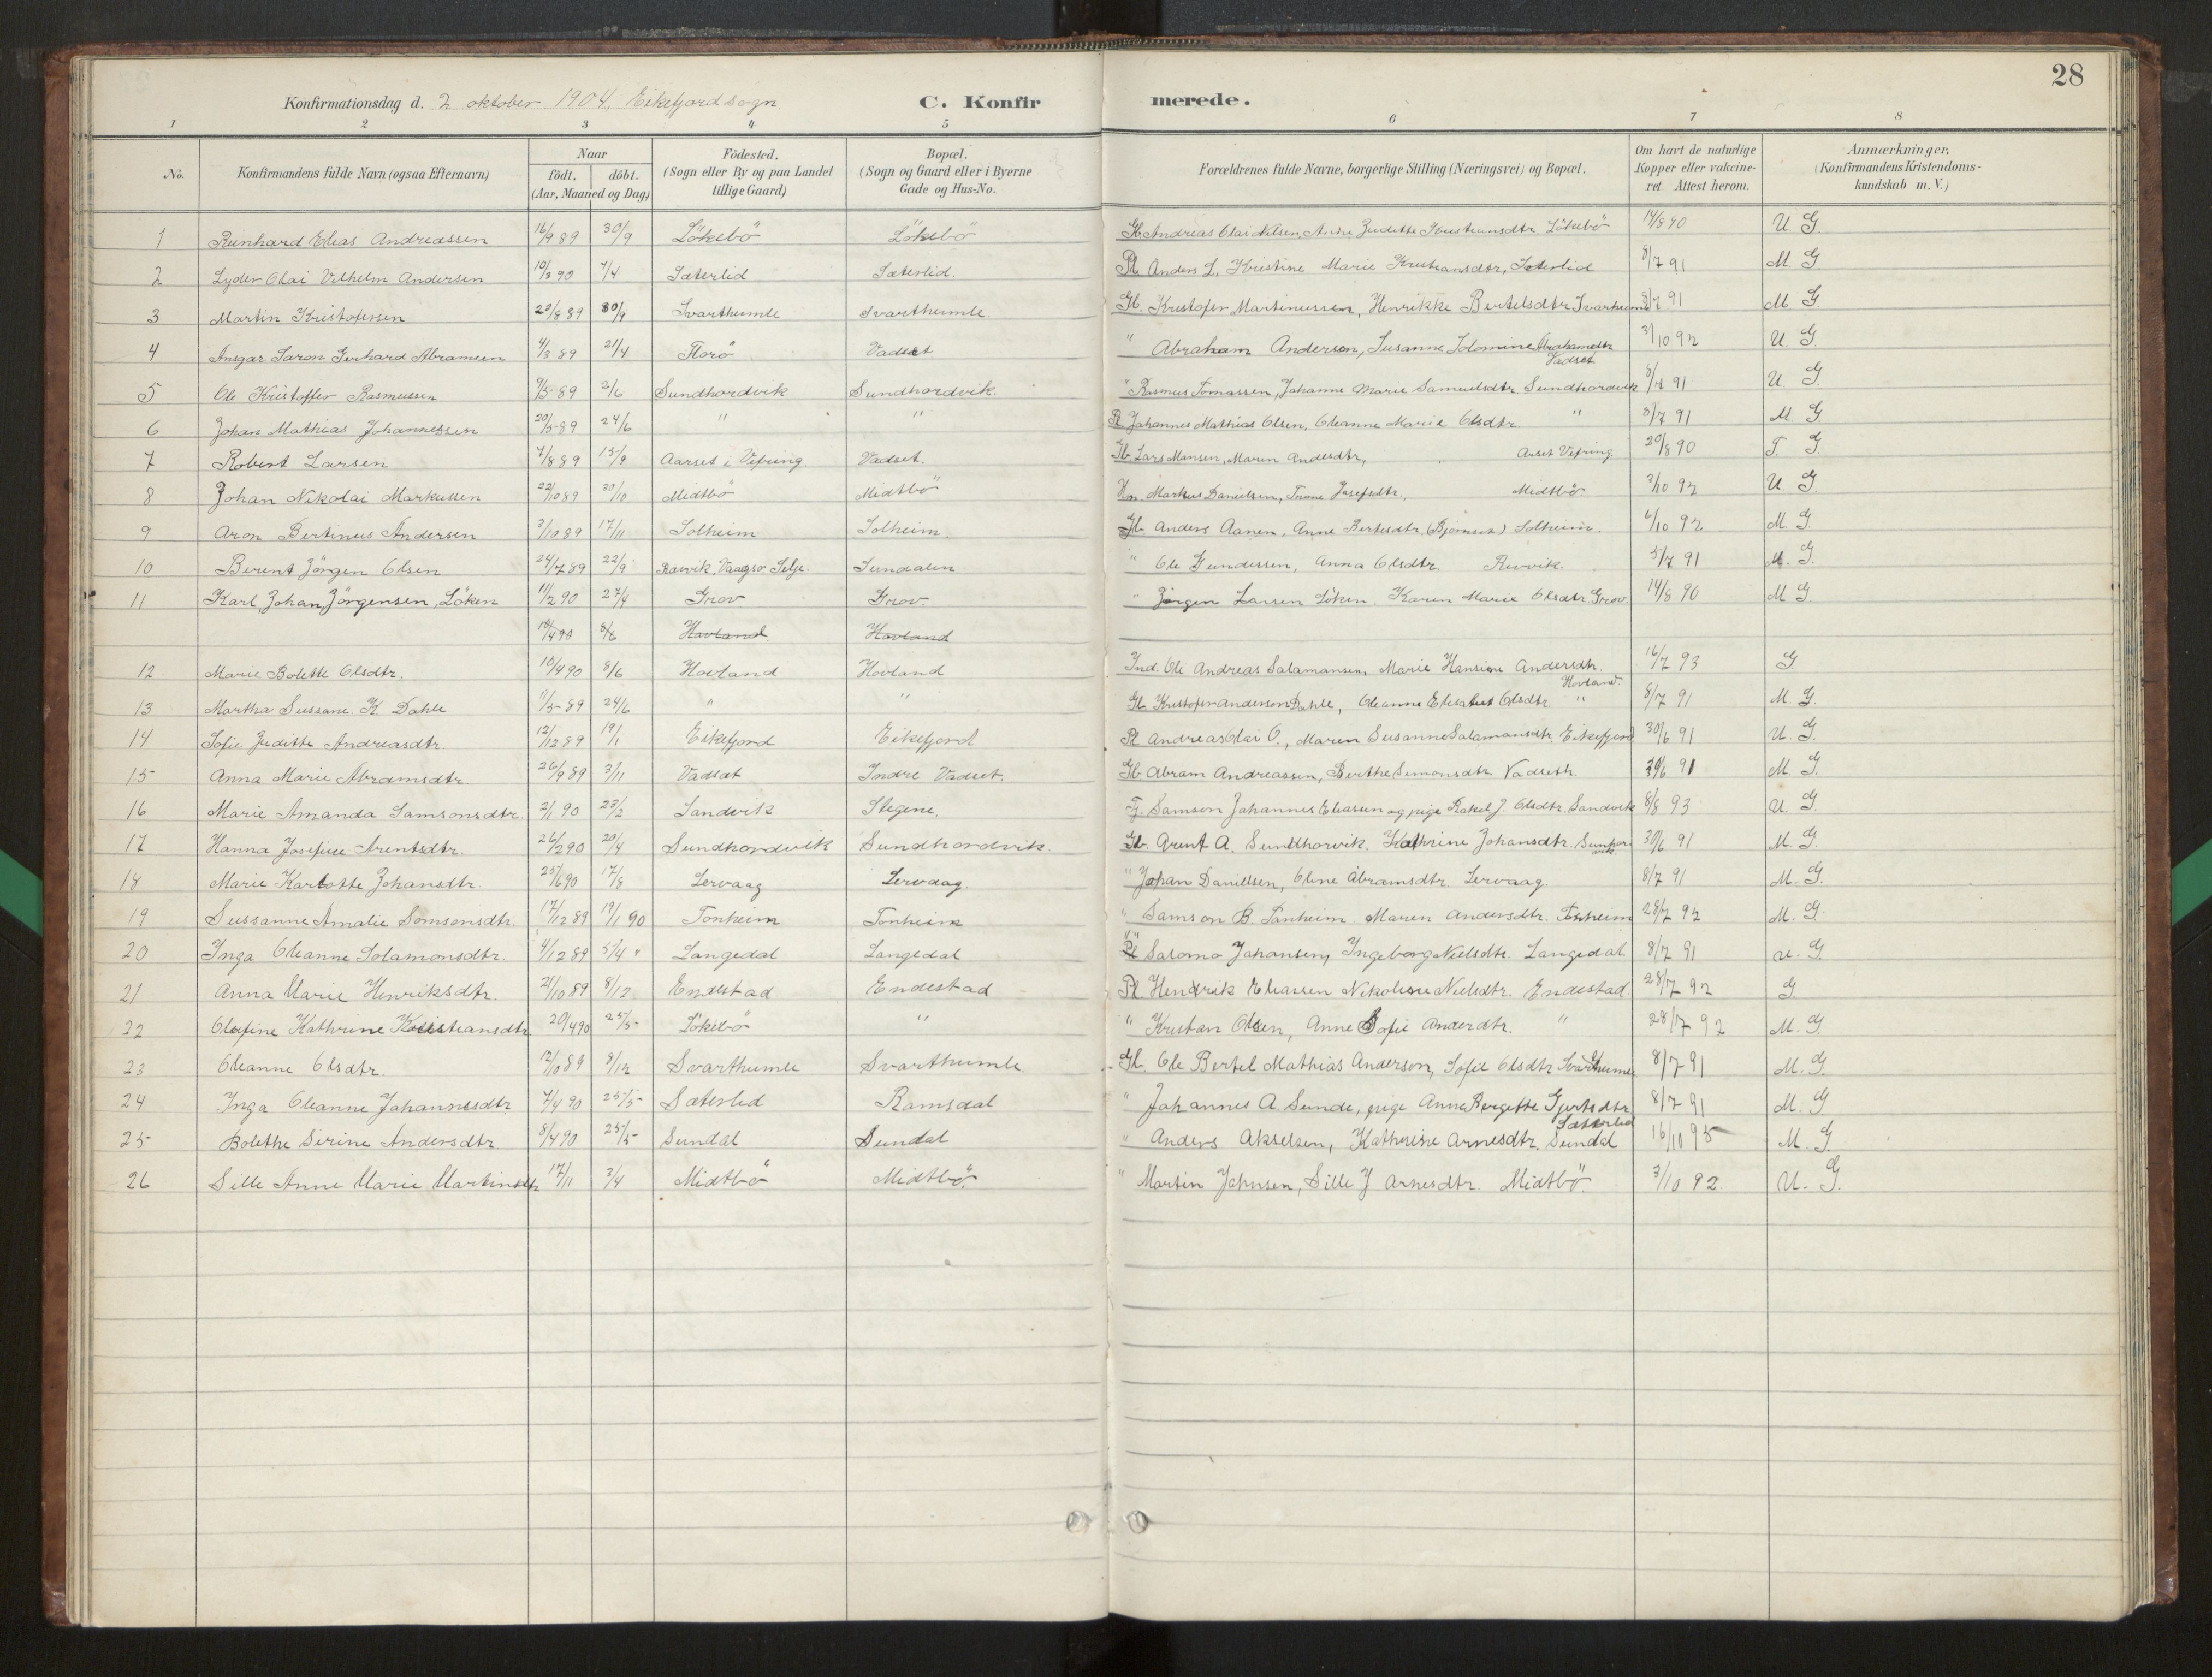 28
Konfirmationsdag d. 2 oktober 1904. Eikefjord sogn. C. Konfirmerede.
1 2 3 4 5 6 7 8
No. Konfirmandens fulde Navn (ogsaa Efternavn) Naar Födt. döbt. (Aar, Maaned og Dag) Födested. (Sogn eller By og paa Landet tillige Gaard) Bopæl. (Sogn og Gaard eller i Byerne Gade og Hus-No. Forældrenes fulde Navne, borgerlige Stilling (Næringsvei) og Bopæl. Om havt de naturlige Kopper eller vakcineret. Attest herom. Anmærkninger. (Konfirmandens Kristendomskundskab m. V.)
1 Reinhard Elias Andreassen 16/9 89 30/9 Lökebö Lökebö Gb Andreas Olai Nilsen, Juditte Kristiansdtr Lökebö 14/8 90 U G
2 Lyder Olai Vilhelm Andersen 10/3 90 7/4 Sæterlid Sæterlid. Pl Anders L, Kristine Marie Kristiansdtr, Sæterlid 8/7 91 M. G
3 Martin Kristofersen 23/8 89 30/9 Svarthumle Svarthumle Gb. Kristofer Martinussen, Henrikke Bertelsdtr Svarthumle 8/7 91 M G
4 Ansgar Saron Gerhard Abramsen 4/3 89 21/4 Florö Vadset " Abraham Andersen, Susanne Solomine Abrahamdtr Vadset 3/10 92 U G.
5 Ole Kristoffer Rasmussen 9/5 89 2/6 Sundhordvik Sundhordvik. " Rasmus Tomassen, Johanne Marie Samuelsdtr Sundhordvik 8/7 91 U G.
6 Johan Mathias Johannessen 20/5 89 24/6 " " Pl Johannes Mathias Olsen, Oleanne Marie Olsdtr " 8/7 91 M. G
7 Robert Larsen 7/8 89 15/9 Aarset i Vefring Vadset. Gb. Lars Monsen, Maren Andesdtr, Arset Vefring 20/8 90 T. G.
8 Johan Nikolai Markussen 22/10 89 30/10 Midtbö Midtbö Markus Danielsen, Trone Josefsdtr., Midtbö 3/10 92 U G
9 Aron Bertinus Andersen 3/10 89 17/11 Solheim Solheim. Gb Anders Aanen, Anne Bertesdtr. (Bjornset) Solheim. 6/10 92 M G.
10 Berent Jörgen Olsen 24/7 89 22/9 Raavik, Vaagsö Selje. Sundalen " Ole Gundersen, Anna Olsdtr. Revvik. 5/7 91 M. G.
11 Karl Johan Jörgensen, Löken 11/2 90 27/4 Grov Grov. " Jörgen Larsen Löken, Karen Marie Olsdtr Grov. 14/8 90 M G.
10/4 90 8/6 Hovland Hovland
12 Marie Bolette Olsdtr. 10/4 90 8/6 Hovland Hovland Ind. Ole Andreas Salamansen, Marie Hansine Andersdtr. Hovland. 16/7 93 G
13 Martha Sussane. K Dahle 11/5 89 24/6 " " Gb Kristofer Anderson Dahle, Oleanne Elisabet Olsdtr " 8/7 91 M. G.
14 Sofie Juditte Andreasdtr. 12/12 89 19/1 Eikefjord Eikefjord Pl Andreas Olai O., Maren Susanne Salamansdtr Eikefjord 30/6 91 U G.
15 Anna Marie Abramsdtr. 26/9 89 3/11 Vadset Indre Vadset. Gb Abram Andreassen, Berthe Simonsdtr. Vadseth. 30/6 91 M. G.
16 Marie Amanda Samsonsdtr. 2/1 90 23/2 Sandvik Stegene. Samson Johannes Eliasen og pige Rakel J. Olsdtr. Sandvik 8/8 93 U G.
17 Hanna Josefine Arentsdtr. 26/2 90 20/4 Sundhordvik Sundhordvik. Gb. Arent A. Sundhorvik, Kathrine Johansdtr. Sunhorvik. 30/6 91 M. G.
18 Marie Karlotte Johansdtr. 25/6 90 17/8 Lervaag Lervaag. " Johan Daniellsen, Oline Abramsdtr. Lervaag. 8/7 91 M. G.
19 Sussanne Amalie Somsonsdtr. 17/12 89 19/1 90 Tonheim Tonheim " Samson B. Tonheim. Maren Andersdtr. Tonheim 28/7 92 M. G.
20 Inga Oleanne Solamonsdtr. 4/12 89 5/4 " Langedal Langedal Pl Salomo Johansen, Ingeborg Nielsdtr. Langedal 8/7 91 U. G.
21 Anna Marie Henriksdtr. 21/10 89 8/12 Endestad Endestad Pl Hendrik Eliassen Nikoline Nielsdtr. Endestad 28/7 92 G
22 Olufine Kathrine Kristiansdtr 20/4 90 25/5 Lökebö " " Kristian Olsen, Anne Sofie Anderdtr. " 28/7 92 M. G
23 Oleanne Olsdtr. 12/10 89 8/12 Svarthumle Svarthumle Gb. Ole Bertel Mathias Anderson, Sofie Olsdtr Svarthumle 8/7 91 M. G.
24 Inga Oleanne Johannesdtr 7/4 90 25/5 Sæterlid Ramsdal " Johannes A Sunde, pige Anne Bergette Gjertsdtr Sæterlid 8/7 91 M. G
25 Bolethe Sirine Andersdtr 8/4 90 25/5 Sundal Sundal " Anders Akselsen, Katherine Arnesdtr. Sundal 16/10 95 M. G
26 Sille Anne Marie Martinsdtr 17/11 3/4 Midtbö Midtbö. " Martin Johnsen, Sille J Arnesdtr. Midtbö. 3/10 92. U. G.